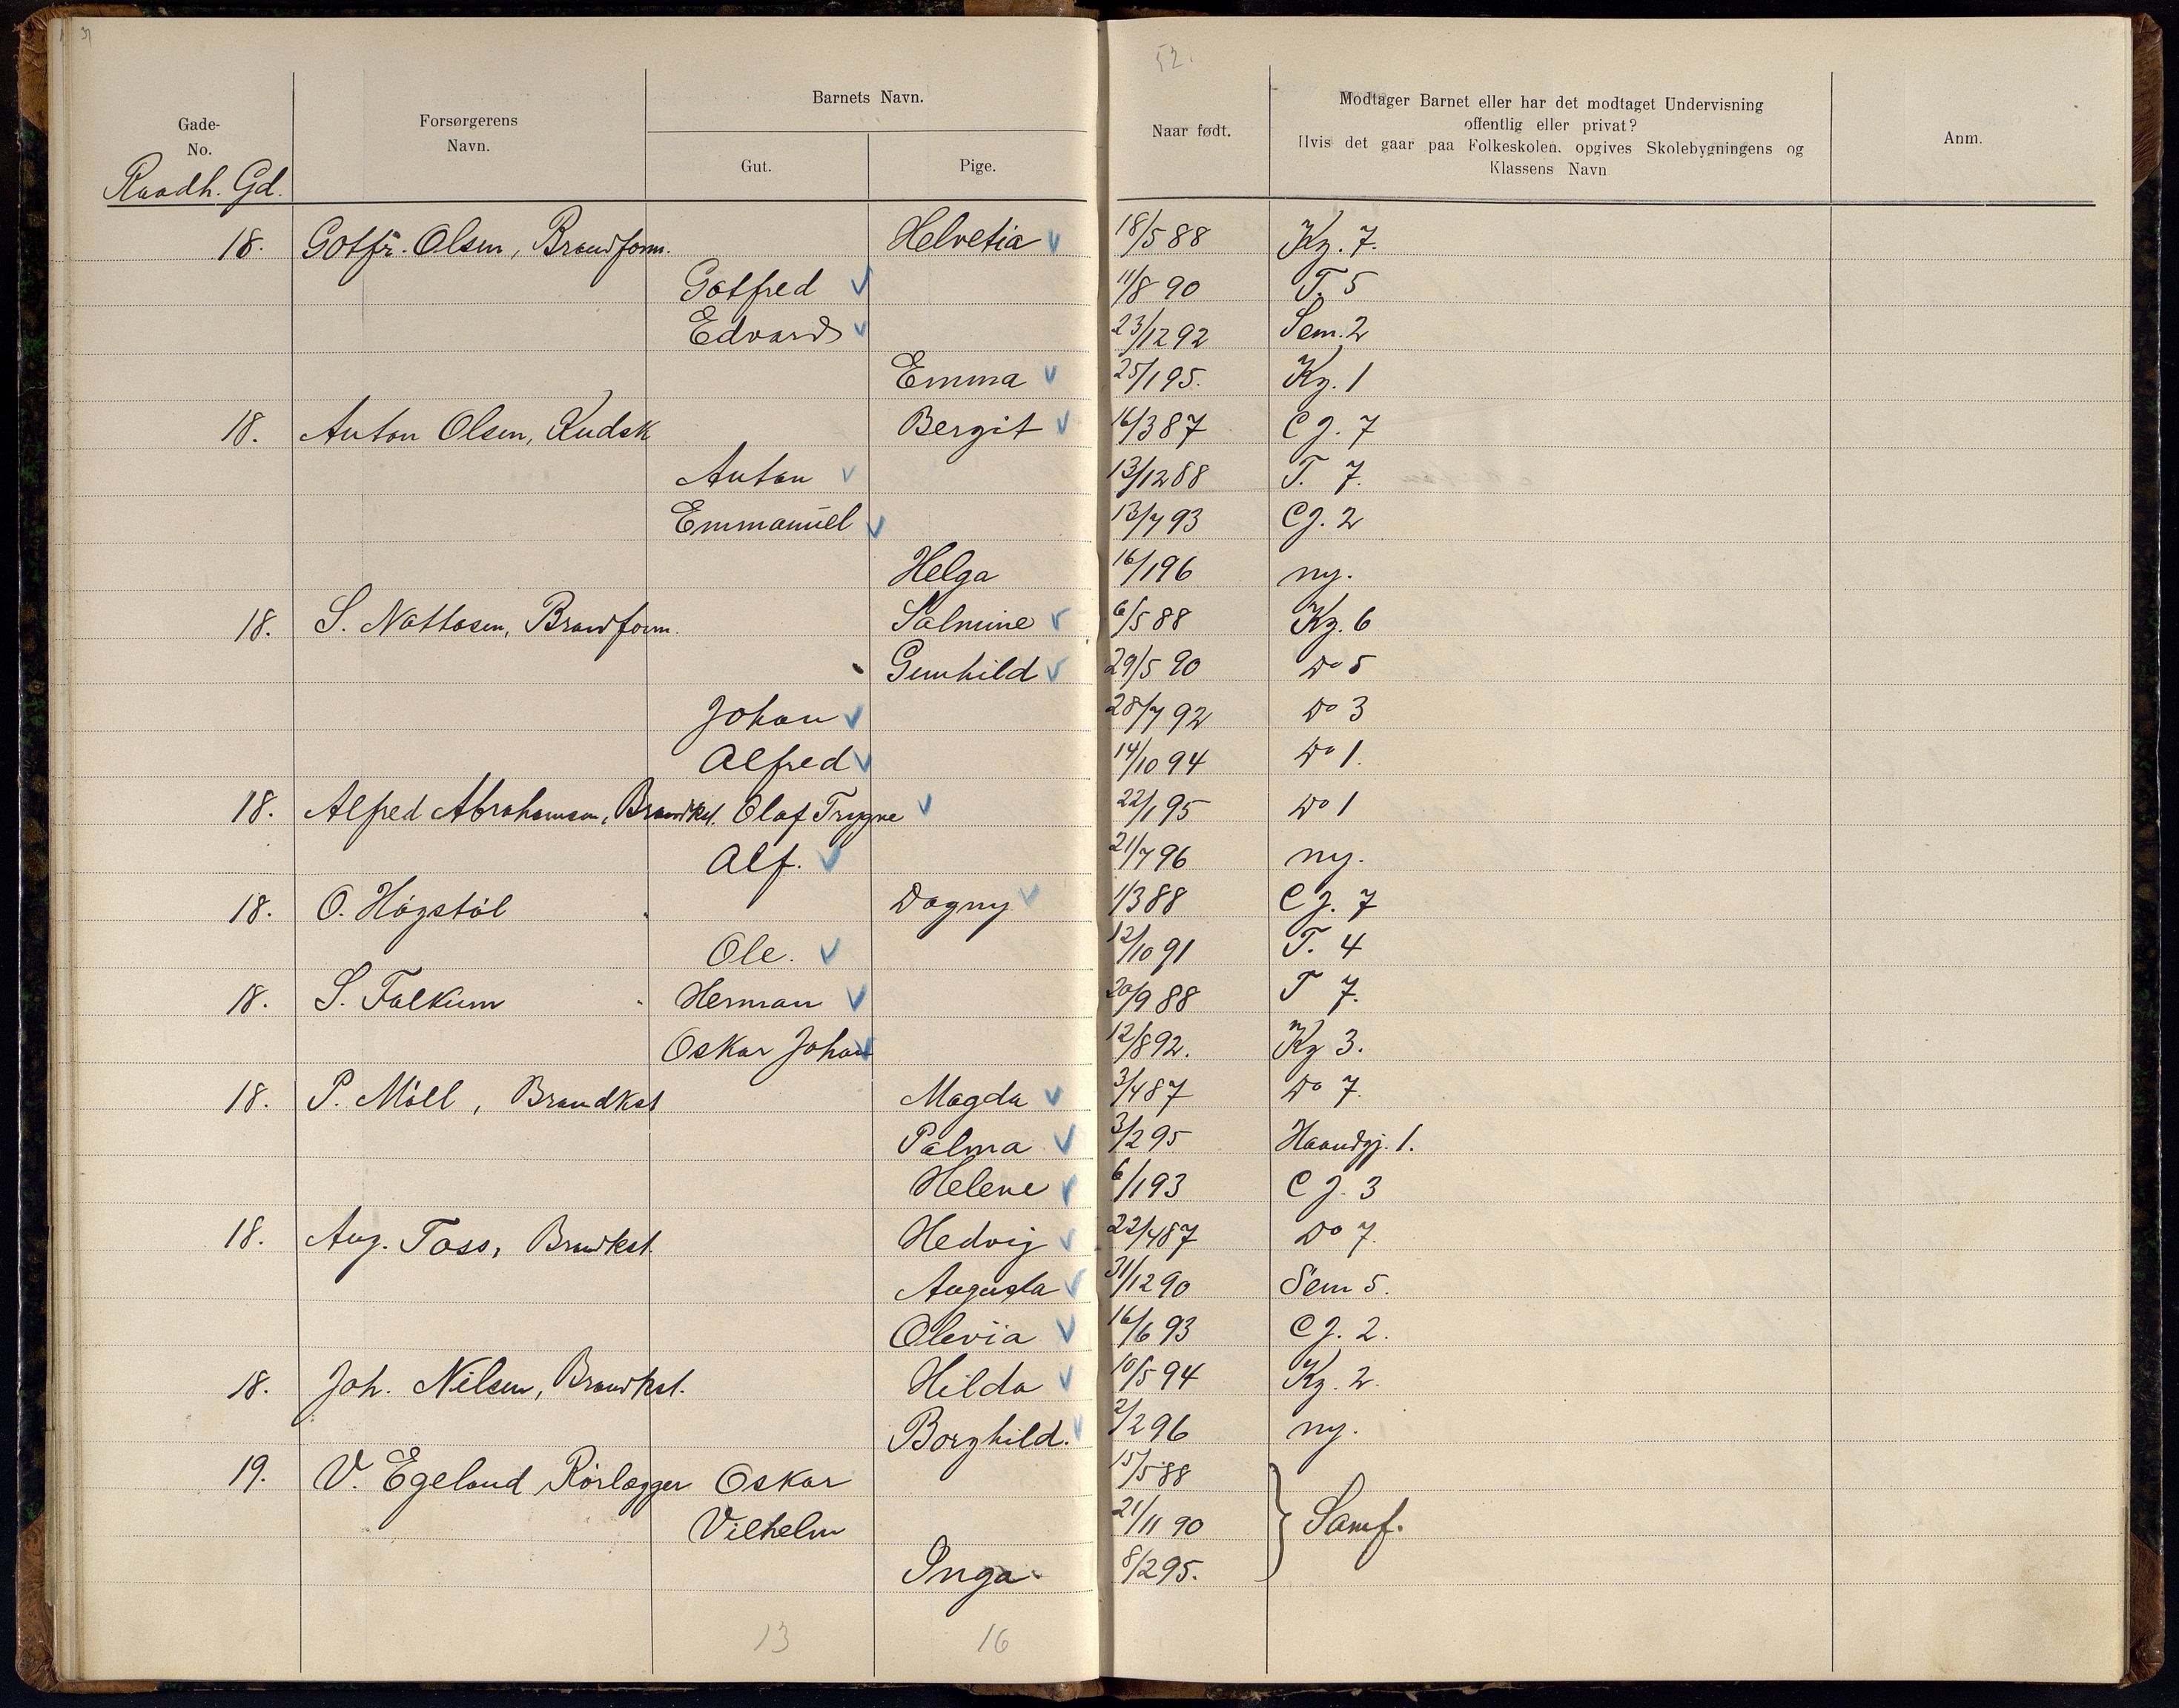 52.
Gade-
No.
Forsørgerens
Navn.
Barnets Navn.
Gut.
Pige.
Naar født.
Modtager Barnet eller har det modtaget Undervisning
offentlig eller privat?
Hvis det gaar paa Folkeskolen, opgives Skolebygningens og
Klassens Navn
Anm.
Raadh. Gd.
18. Gotfr. Olsen, Brandform. Helvetia 18/5 88 Kz. 7.
Gotfred 11/8 90 T. 5
Edvard 23/12 92 Sem. 2
Emma 25/1 95. Kz. 1
18. Anton Olsen, Kudsk Bergit 16/3 87 C J. 7
Anton 13/12 88 T. 7.
Emmanuel 13/7 93 C J. 2
Helga 16/1 96 ny.
18. S. Nattosen, Brandform. Salmine 6/5 88 Kz. 6
Gunhild 29/5 90 Do 5
Johan 28/7 92 Do 3
Alfred 14/10 94 Do 1.
18. Alfred Abrahamsen, Brandkst. Olaf Trygve 22/1 95 Do 1
Alf. 21/7 96 ny.
18. O. Högstöl " Dagny 1/3 88 C J. 7
Ole. 12/10 91 T. 4
18. S. Falkum " Herman 20/9 88 T 7.
Oskar Johan 12/8 92. Kz 3.
18. P. Möll, Brandkst Magda 3/4 87 Do 7.
Palma 3/2 95 Haandgj. 1.
Helene 6/1 93 C J. 3
18. Aug. Tass, Brandkst. Hedvig 22/4 87 Do 7.
Augusta 31/12 90 Sem 5.
Olevia 16/6 93 C J. 2.
18. Joh. Nilsen, Brandkst. Hilda 10/5 94 Kz. 2.
Borghild. 2/2 96 ny.
19. V. Egeland Rörlægger Oskar 15/5 88
Vilhelm 21/11 90 } Samf.
Inga 8/2 95.
13 16